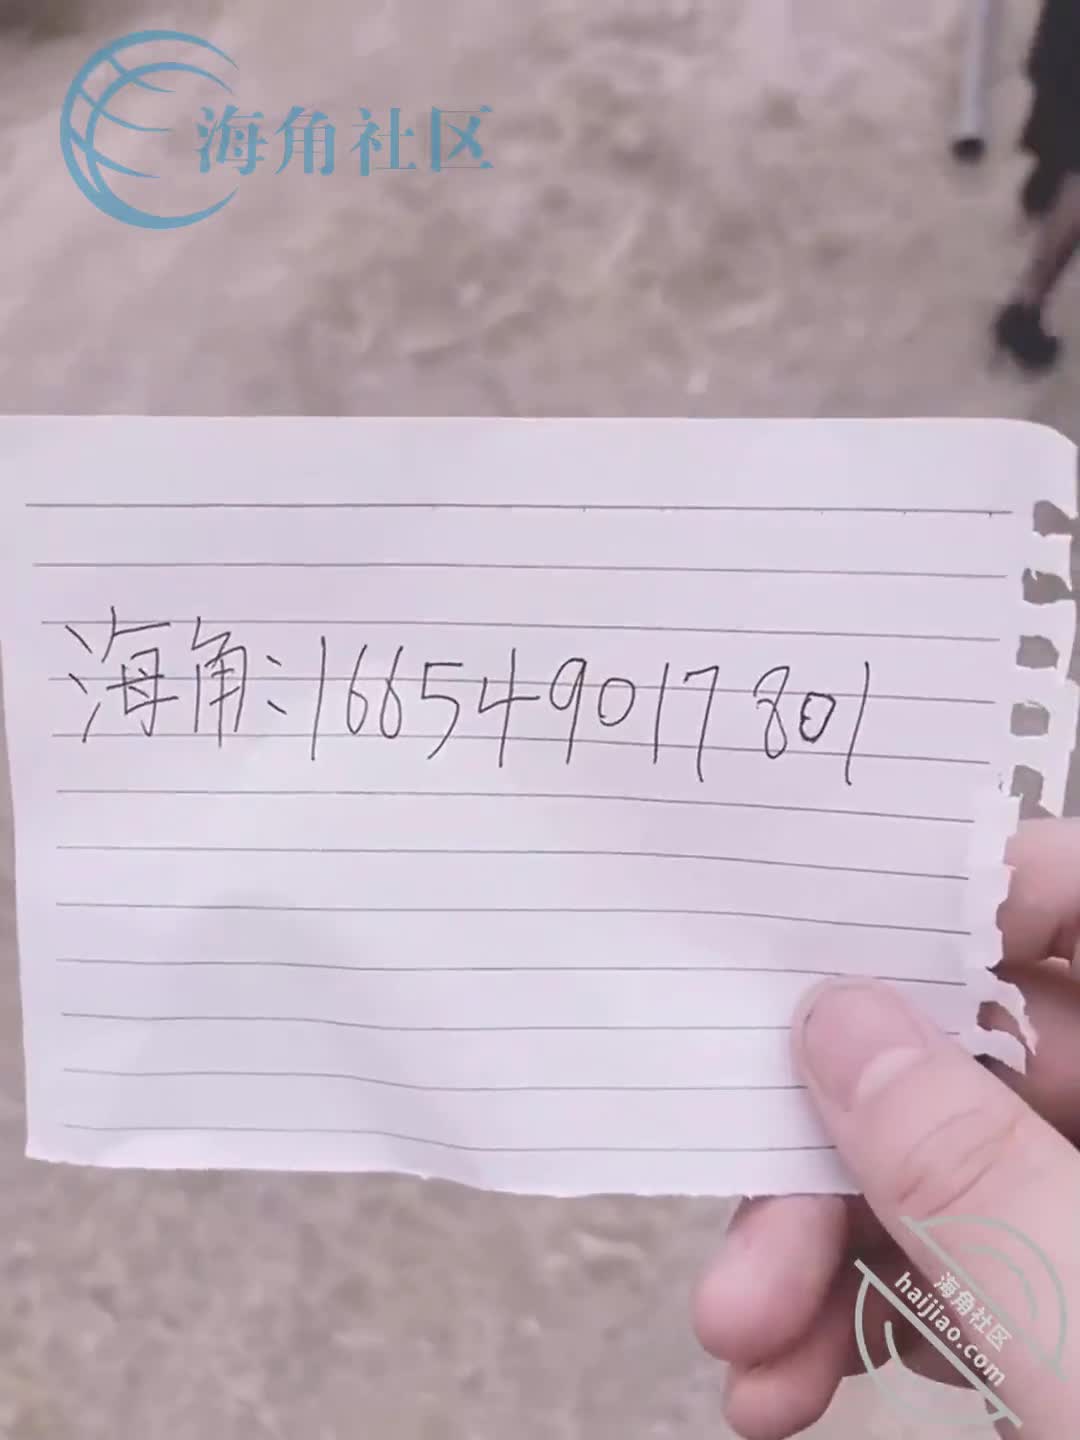 海角社区
海角:166549017801
海角社区
haijiao.com